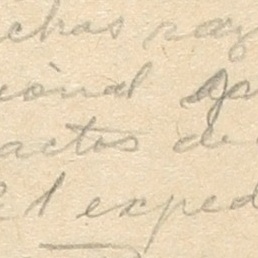 chas raz
cional ga
actos de
el exped